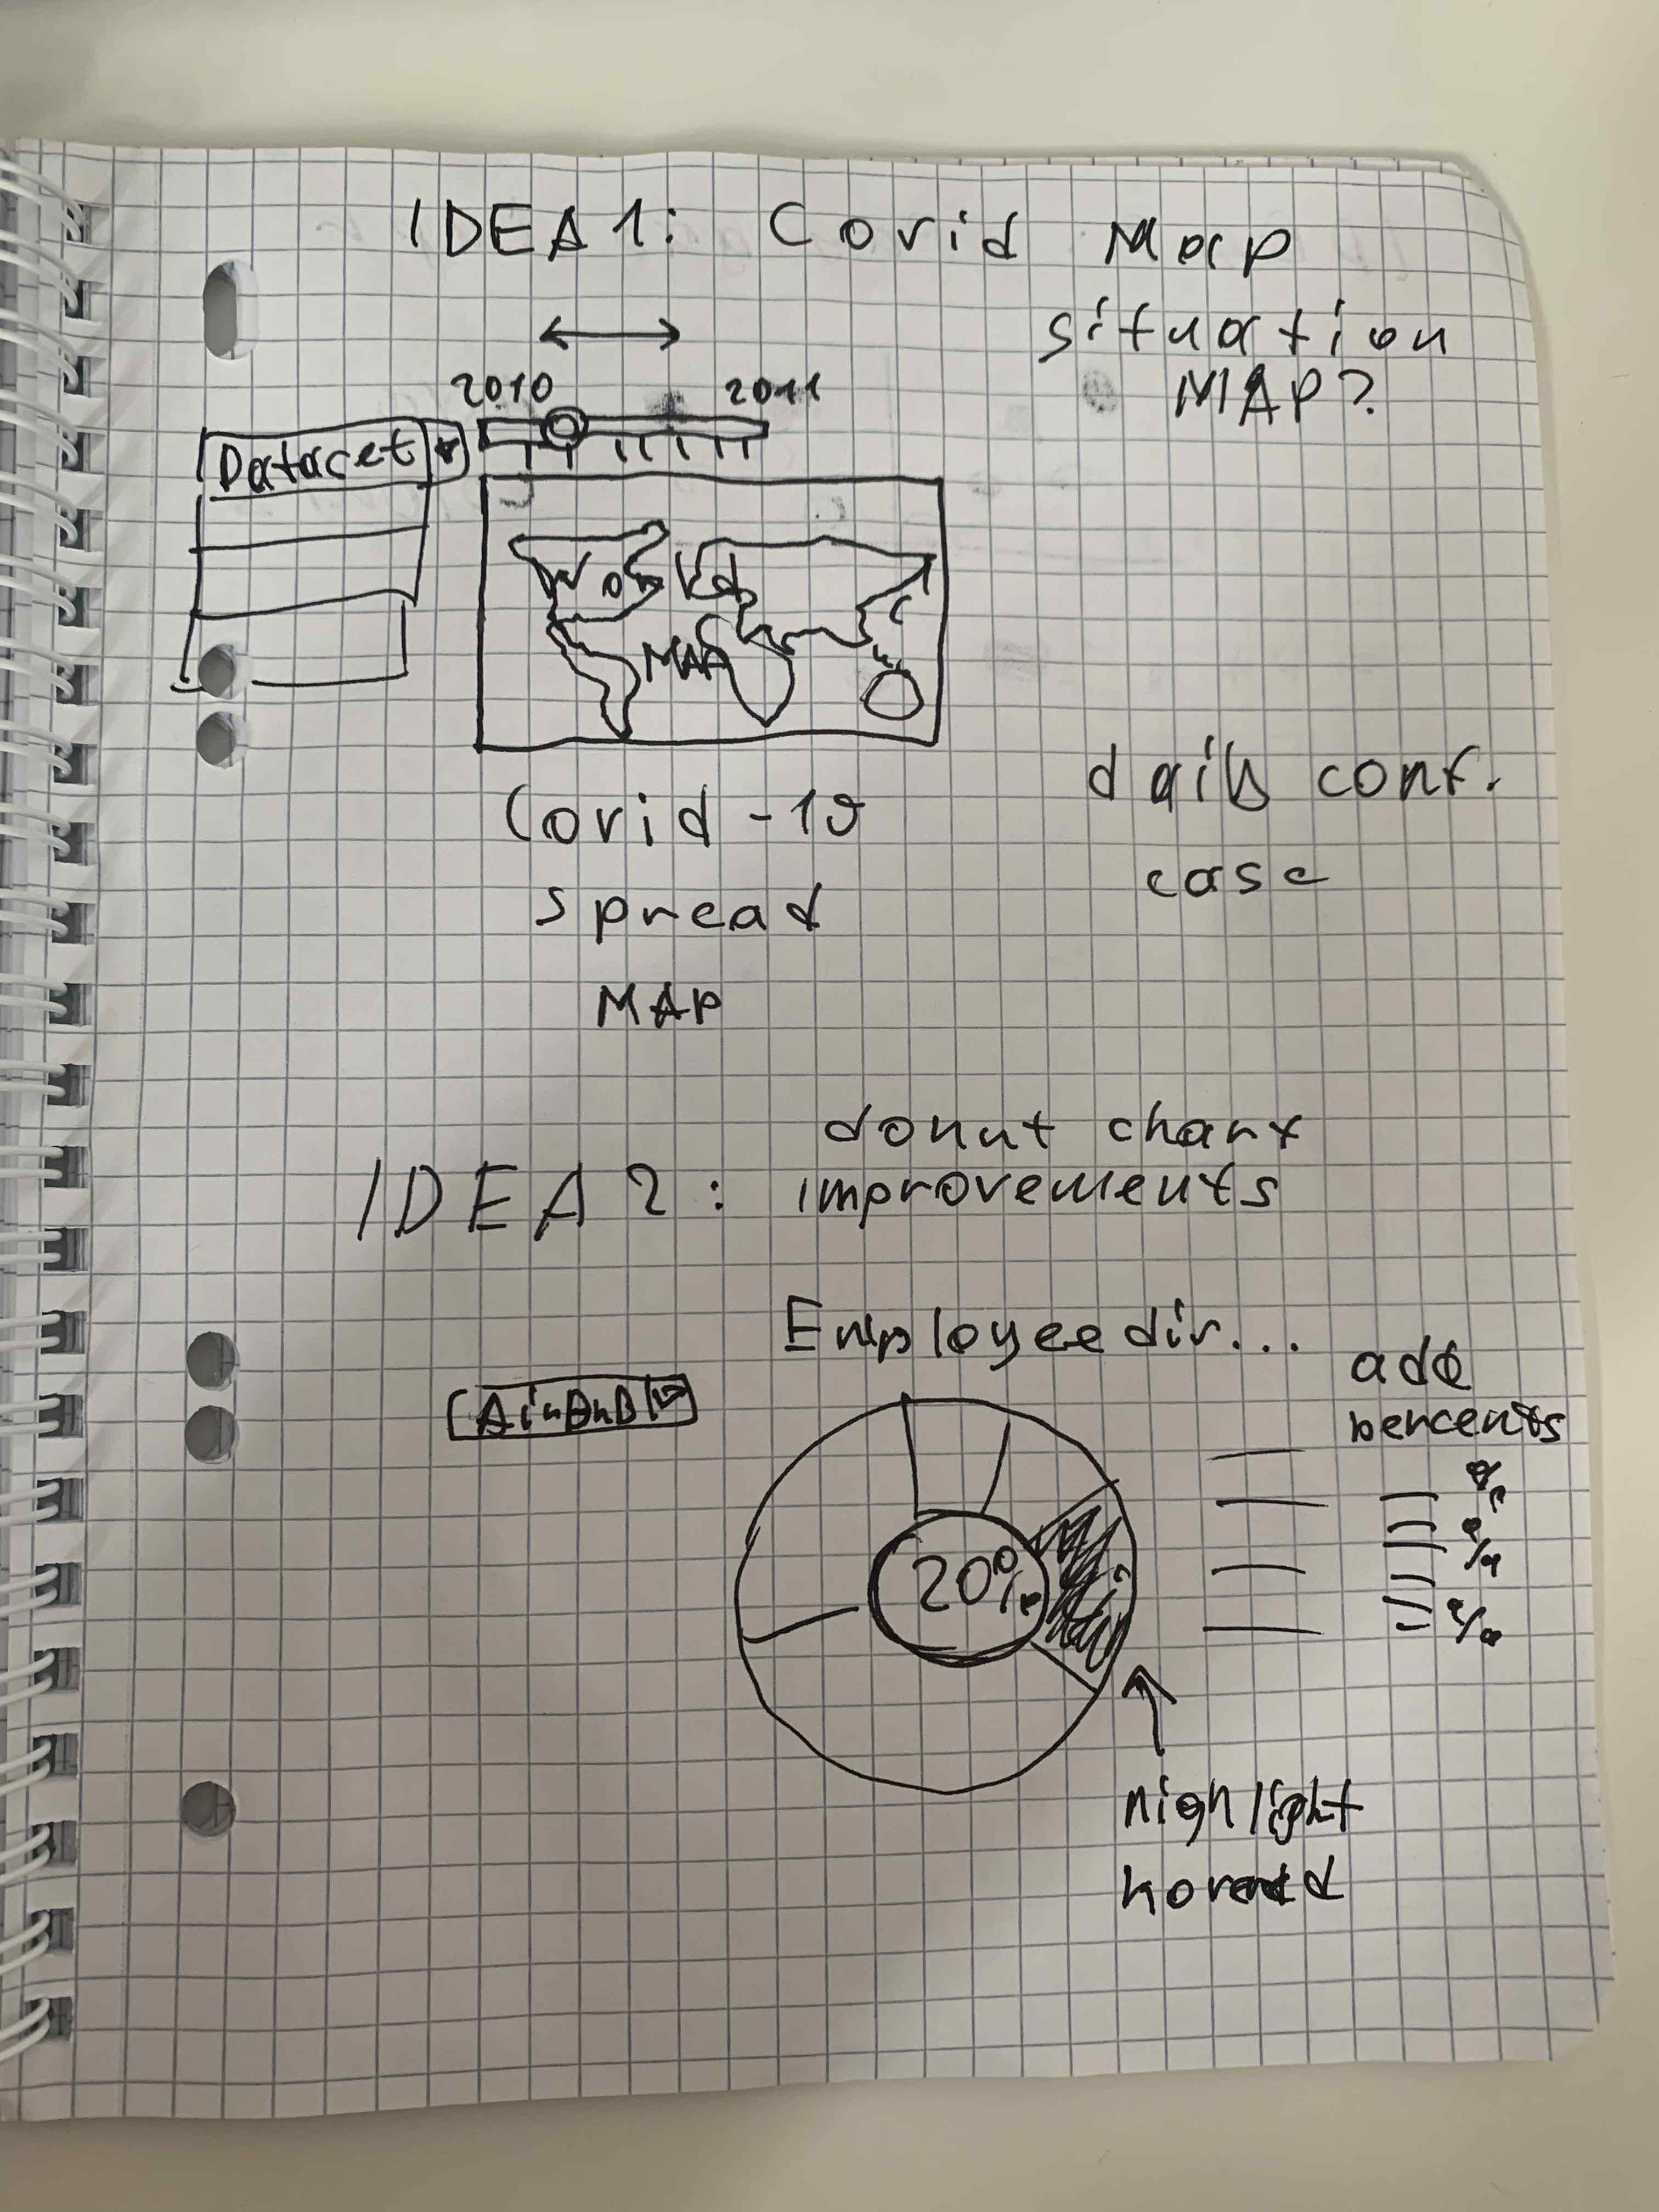 IDEA 1: Covid Map
situation
MAP?
2010 2011
Dataset
World
MAP
Covid-19
spread
MAP
daily conf.
case
donut chart
IDEA 2: improvements
Employee dir...
AirBnB
add
percents
20%
%
%
%
highlight
hovered